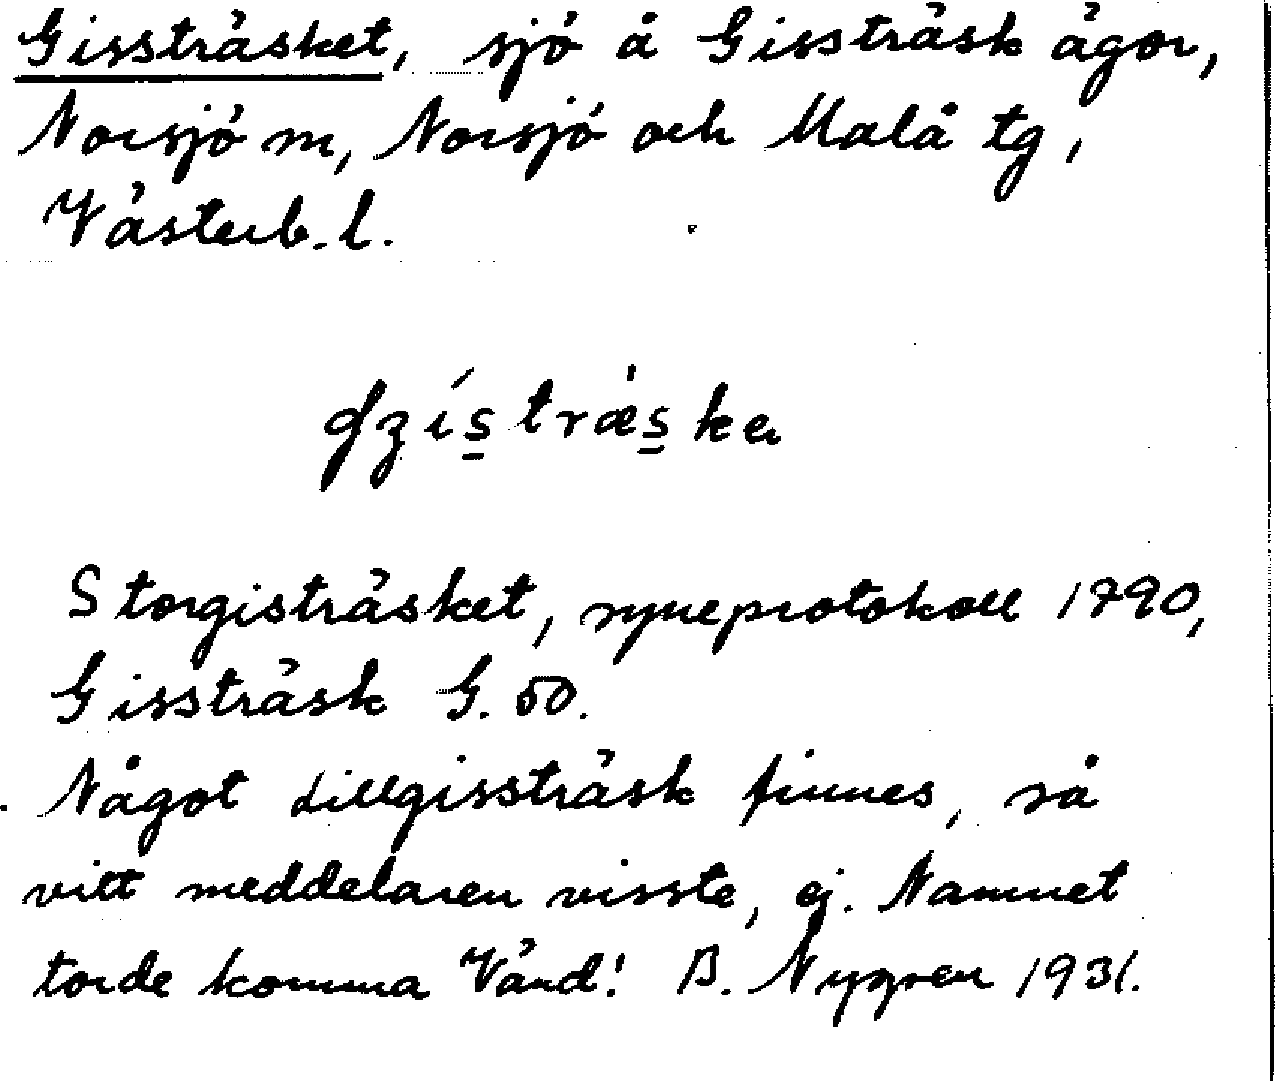 Gissträsket, sjö å Gissträsk ägor,
Norsjö m, Norsjö och Malå tg,
Västerb. l.
Storgisträsket, syneprotokoll 1790,
Gissträsk G. 50.
Något Lillgissträsk finnes, så
vitt meddelaren visste, ej. Namnet
torde komma Vänd! B. Nygren 1931.